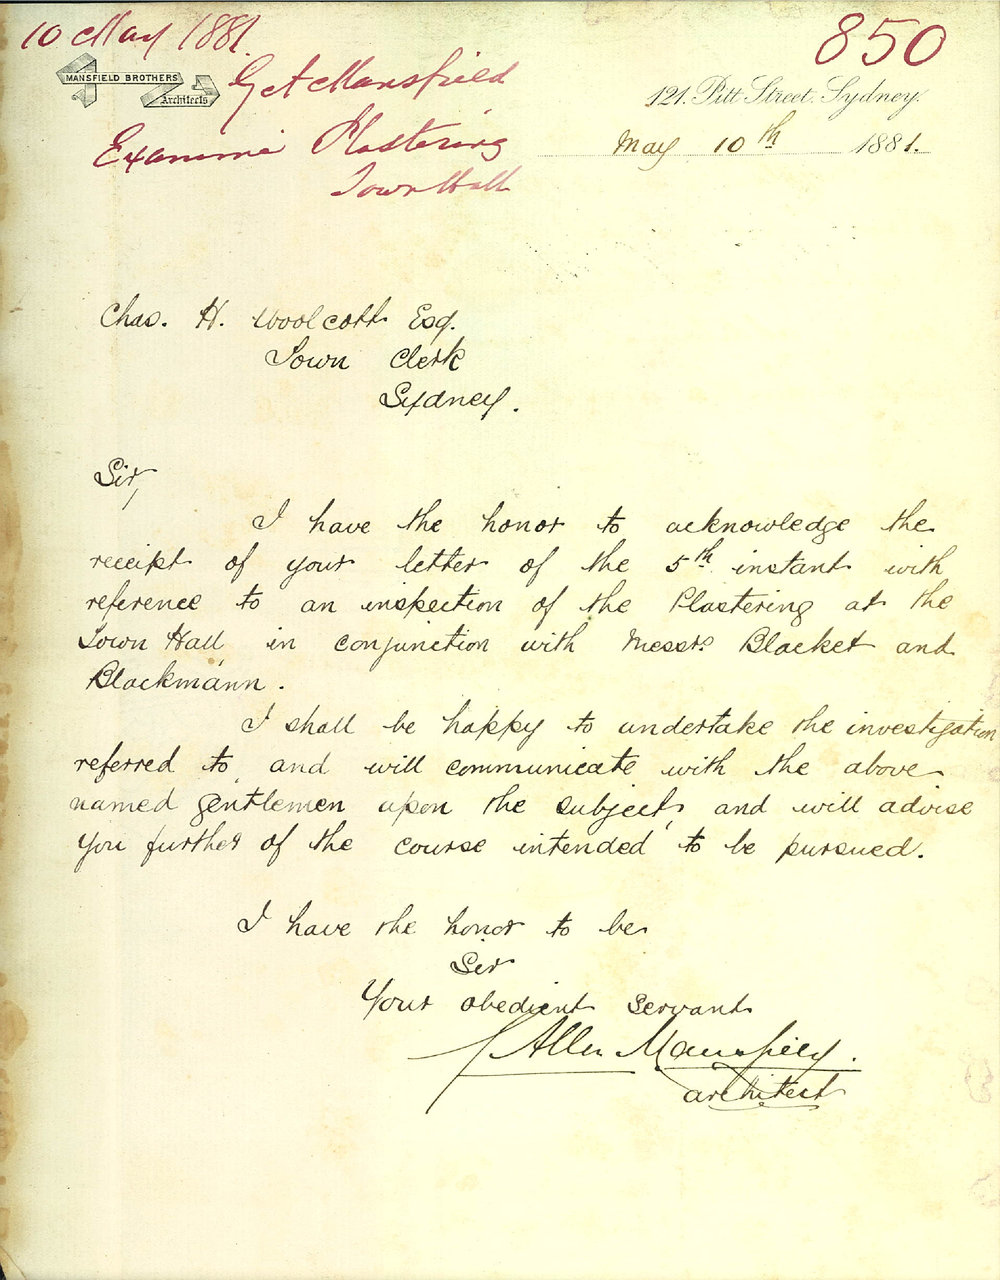 10 May 1881
850
MANSFIELD BROTHERS
Architects
G A Mansfield
121. Pitt Street. Sydney.
Examine Plastering
May 10th 1881.
Town Hall
Chas. H. Woolcott Esq.
Town Clerk
Sydney.
Sir,
I have the honor to acknowledge the
receipt of your letter of the 5th instant with
reference to an inspection of the Plastering at the
Town Hall in conjunction with Messrs. Blacket and
Blackmann.
I shall be happy to undertake the investigation
referred to, and will communicate with the above
named gentlemen upon the subject, and will advise
you further of the course intended to be pursued.
I have the honor to be
Sir
Your obedient servant
Allen Mansfield.
architect